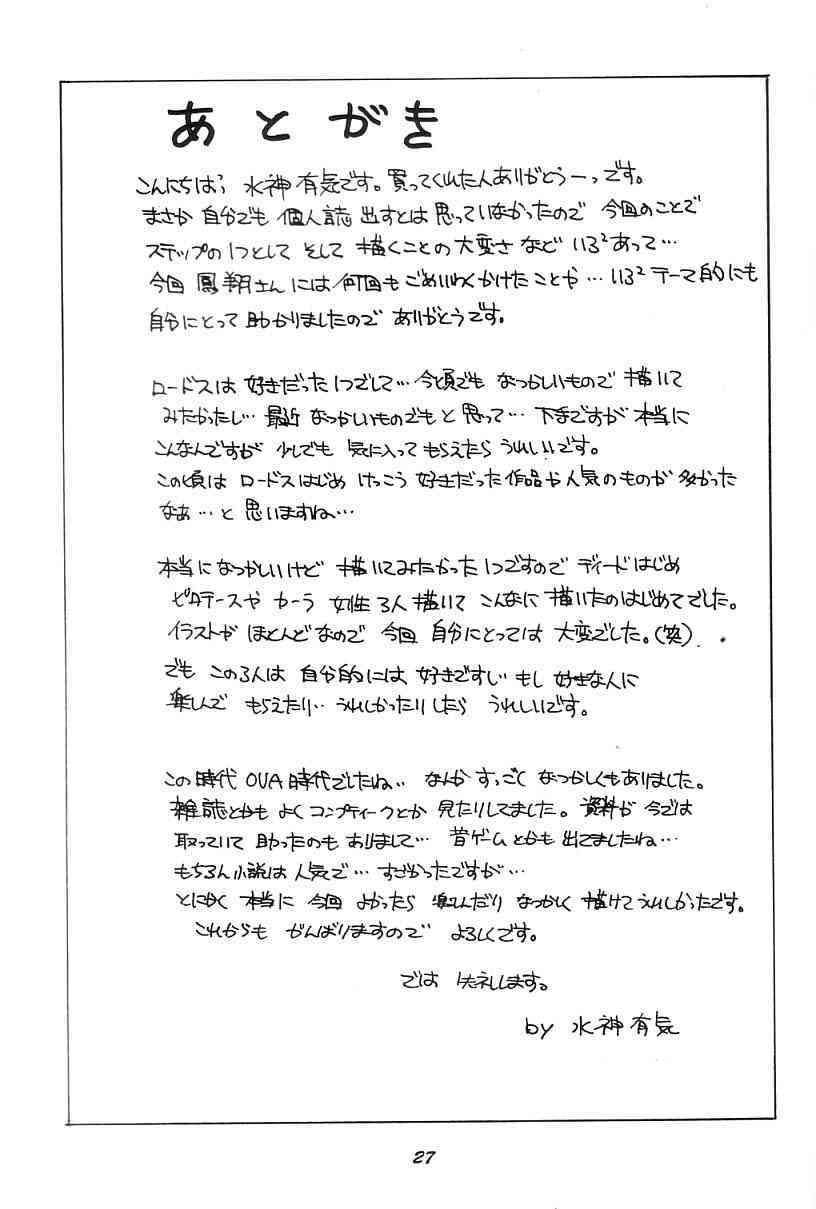 あとがき
こんにちはっ 水神有気です。買ってくれた人ありがとうーっです。
まさか 自分でも 個人誌 出すとは 思っていなかったので 今回のことで
ステップの1つとして そして 描くことの大変さ など いろ²あって…
今回 鳳翔さん には 何回も ごめいわくかけたことや… いろ² テーマ的にも
自分にとって 助かりましたので ありがとうです。
ロードスは 好きだった1つでして… 今頃でも なつかしいもので 描いて
みたかったし… 最近 なつかしいものでもと 思って… 下手ですが 本当に
こんなんですが 少しでも 気に入って もらえたら うれしいです。
この頃は ロードスはじめ けっこう 好きだった作品や人気のものが 多かった
なぁ…と 思いますね…
本当になつかしいけど 描いてみたかった1つですので ディードはじめ
ピロテースや カーラ 女性3人描いて こんなに 描いたのはじめてでした。
イラストが ほとんどなので 今回 自分にとっては 大変でした。(笑)
でも この3人は 自分的には 好きですし もし 好きな人に
楽しんで もらえたり… うれしかったりしたら うれしいです。
この時代 OVA時代でしたね… なんか すっごく なつかしくもありました。
雑誌とかも よく コンプティークとか 見たりしてました。資料が 今では
取っていて 助ったのも ありまして… 昔ゲームとかも 出てましたね…
もちろん小説は人気で… すごかったですが…
とにかく 本当に 今回 よかったら 楽しんだり なつかしく 描けてうれしかったです。
これからも がんばりますので よろしくです。
では 失礼します。
by 水神有気
27